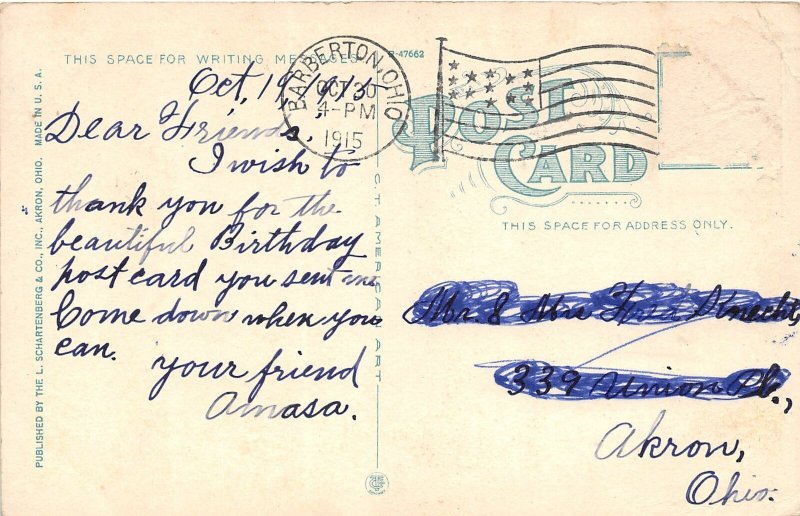 THIS SPACE FOR WRITING MESSAGES
R-47662
BARBERTON, OHIO
OCT 20
4-PM
1915
POST
CARD
THIS SPACE FOR ADDRESS ONLY.
Oct, 19, 1915
Dear Friends,
I wish to
thank you for the
beautiful Birthday
post card you sent me
Come down when you
can.
your friend
Amasa.
Mr. & Mrs
339 Union Pl.,
Akron,
Ohio.
PUBLISHED BY THE L. SCHARTENBERG & CO., INC., AKRON, OHIO. MADE IN U.S.A.
C.T. AMERICAN ART